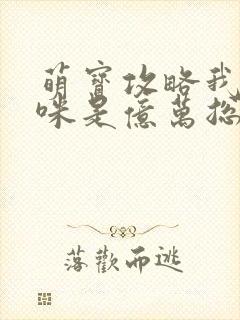 萌寶攻略我
咪是億萬總
落歡而逃